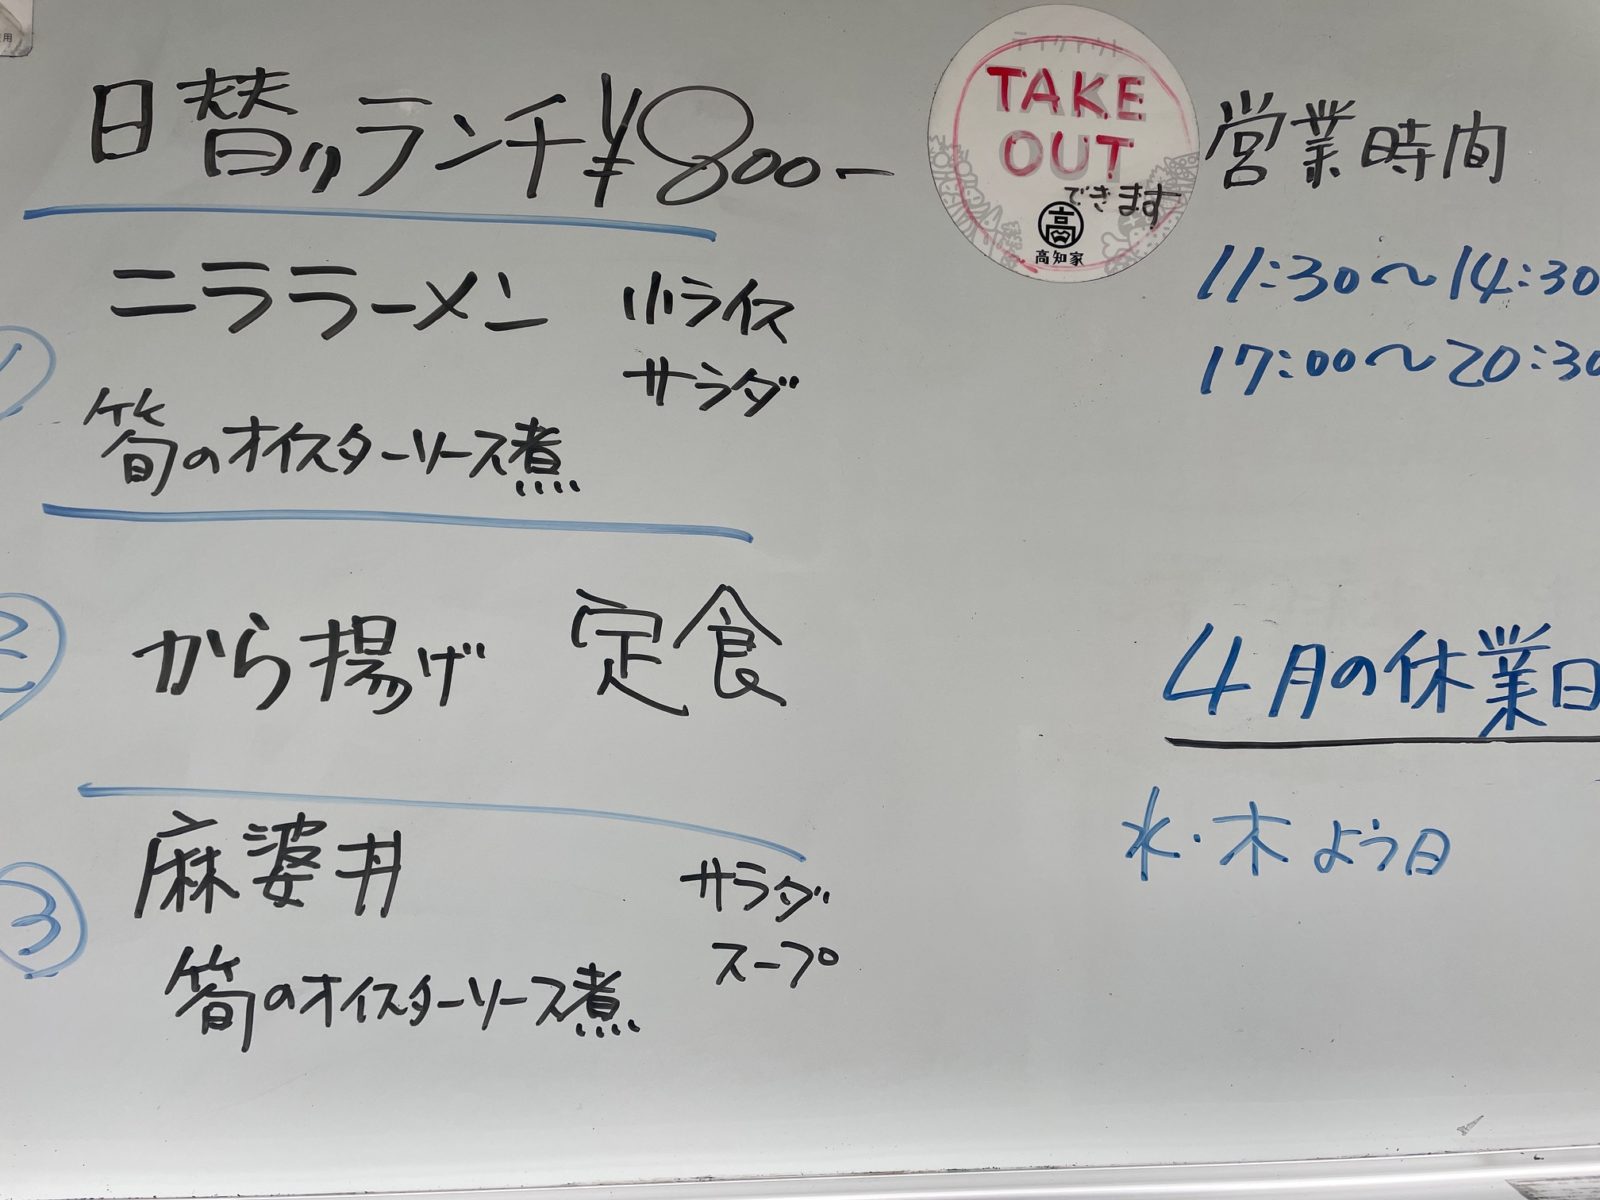 日替りランチ¥800-
①
ニララーメン 小ライス
サラダ
筍のオイスターソース煮
②
から揚げ 定食
③
麻婆丼 サラダ
スープ
筍のオイスターソース煮
テイクアウト
TAKE
OUT
できます
高
高知家
営業時間
11:30〜14:30
17:00〜20:30
4月の休業日
水・木よう日
用